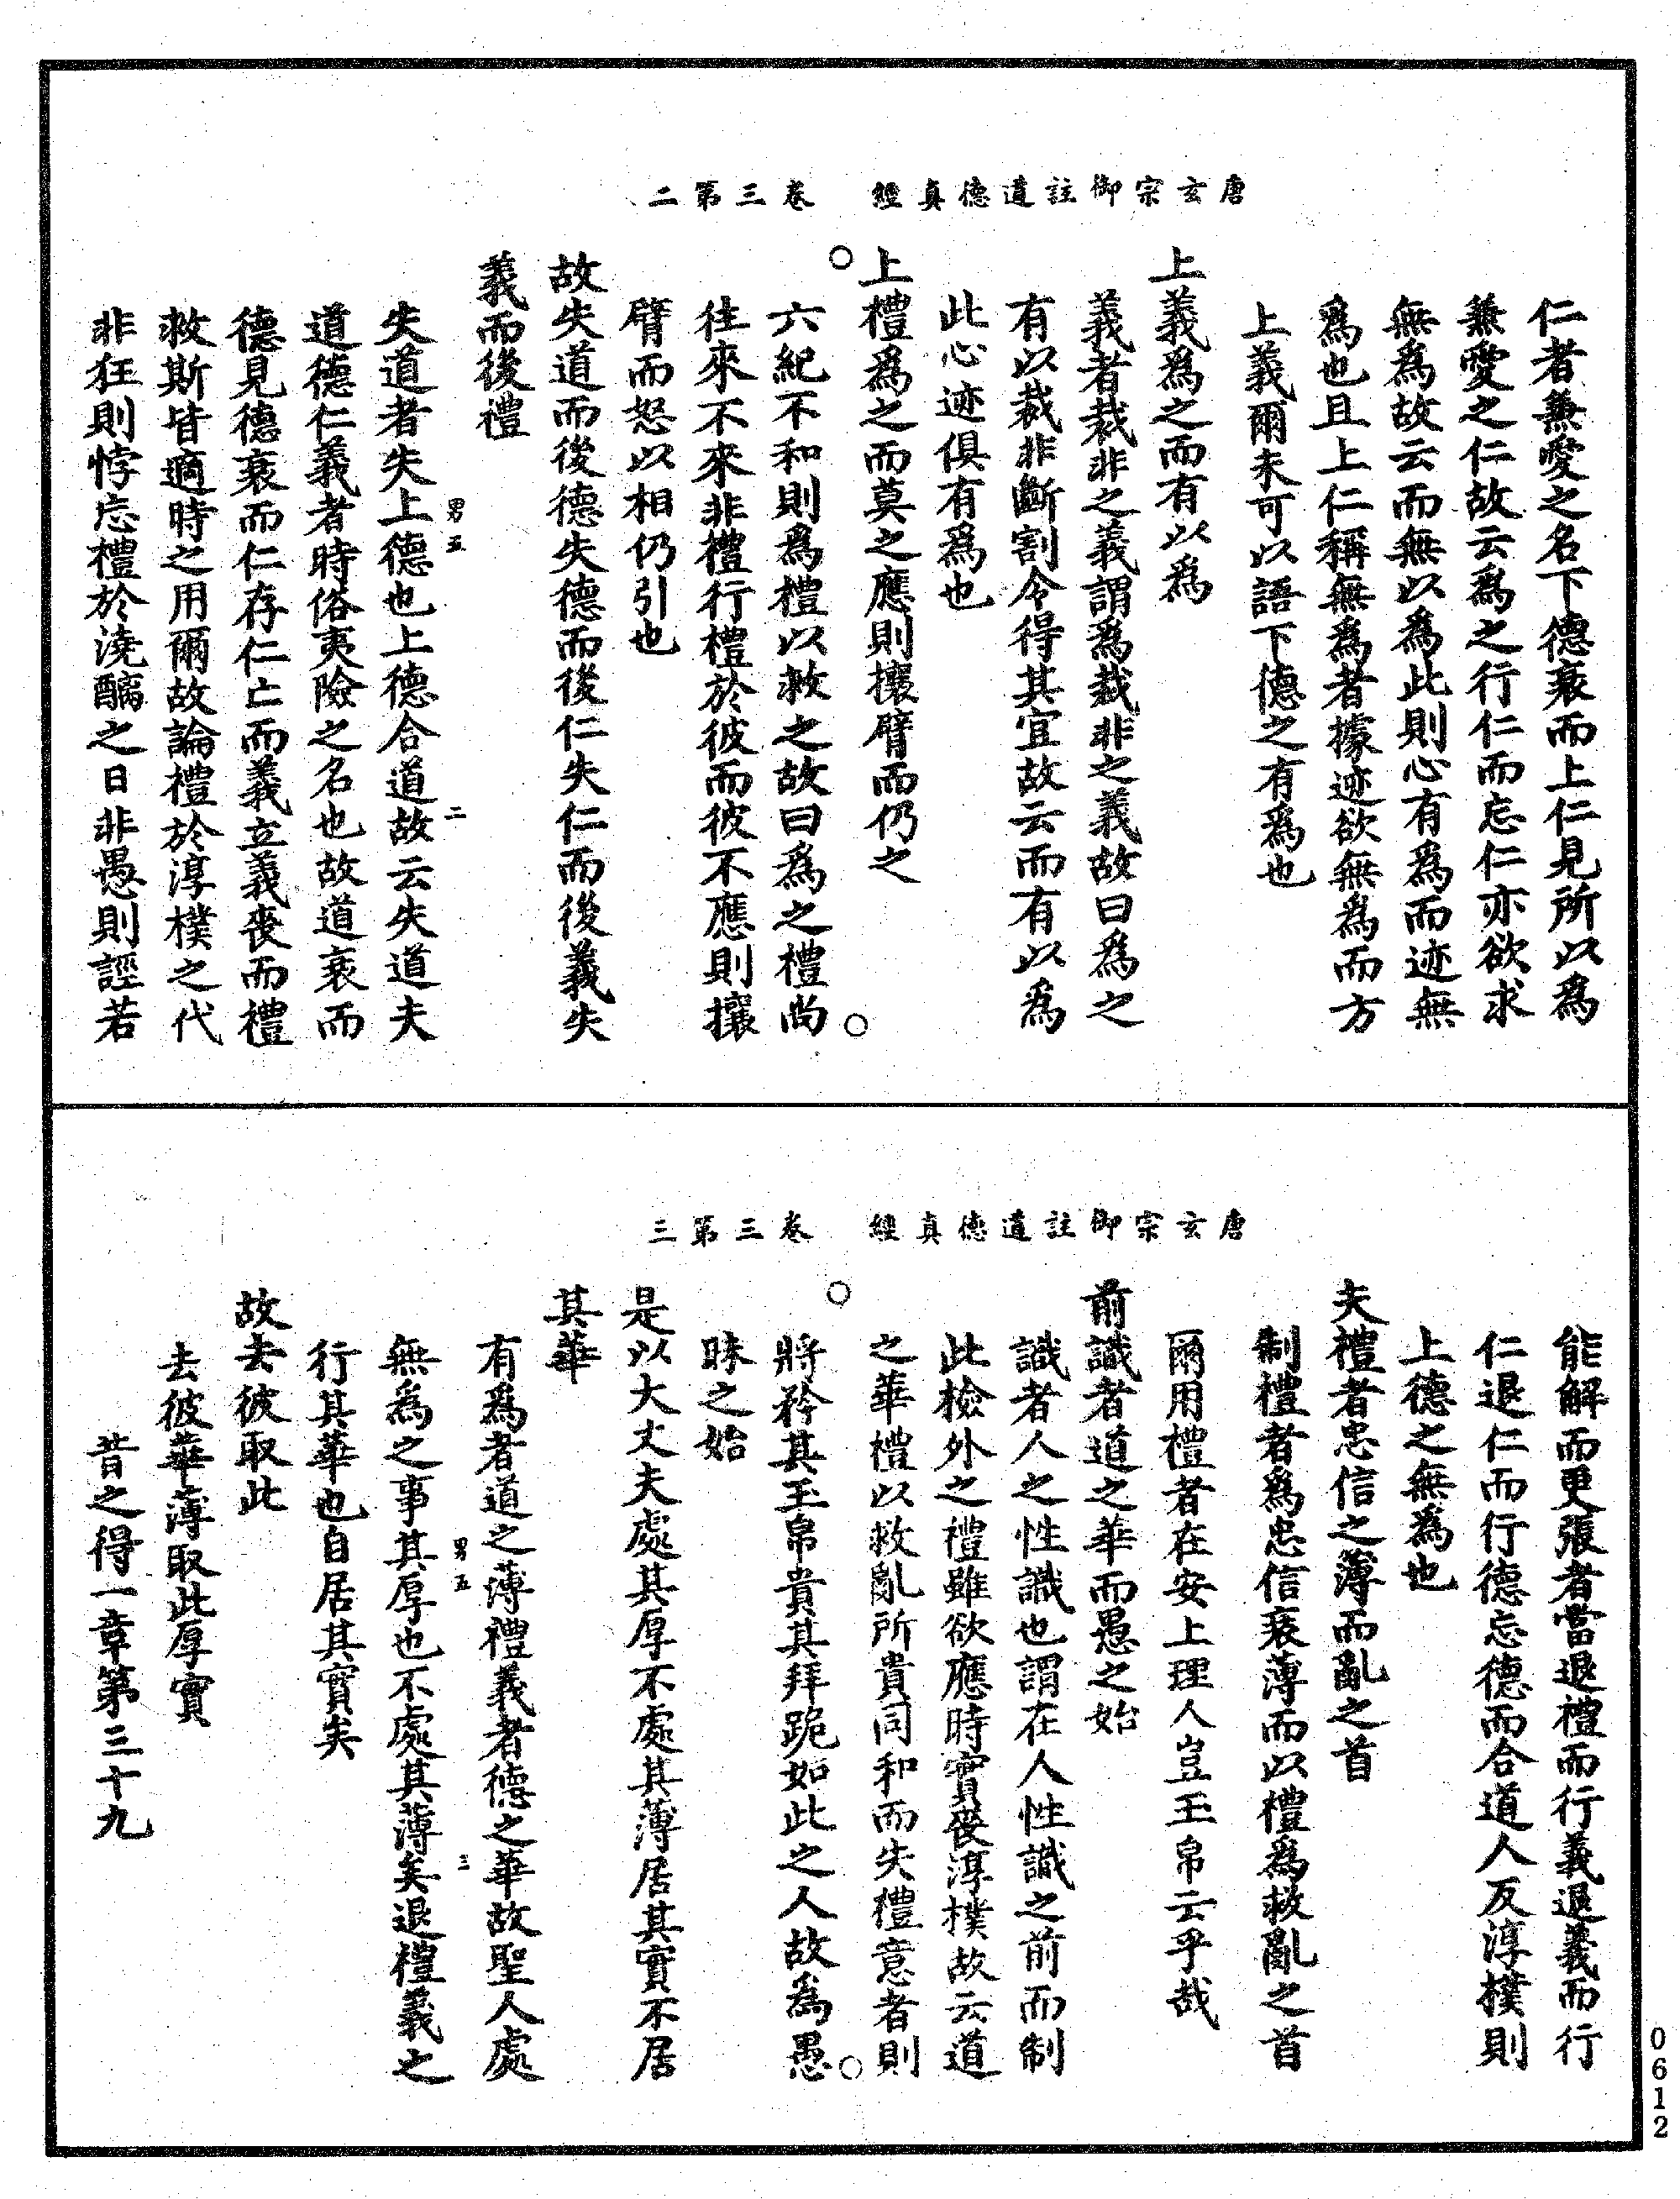 唐玄宗御註道德真經　卷三第二
仁者兼愛之名下德衰而上仁見所以為
兼愛之仁故云為之行仁而忘仁亦欲求
無為故云而無以為此則心有為而迹無
為也且上仁稱無為者據迹欲無為而方
上義爾未可以語下德之有為也
上義為之而有以為
義者裁非之義謂為裁非之義故曰為之
有以裁非斷割令得其宜故云而有以為
此心迹俱有為也
上禮為之而莫之應則攘臂而仍之
六紀不和則為禮以救之故曰為之禮尚
往來不來非禮行禮於彼而彼不應則攘
臂而怒以相仍引也
故失道而後德失德而後仁失仁而後義失
義而後禮
男五　二
失道者失上德也上德合道故云失道夫
道德仁義者時俗夷險之名也故道衰而
德見德衰而仁存仁亡而義立義喪而禮
救斯皆適時之用爾故論禮於淳樸之代
非狂則悖忘禮於澆醨之日非愚則誣若
唐玄宗御註道德真經　卷三第三
能解而更張者當退禮而行義退義而行
仁退仁而行德忘德而合道人反淳樸則
上德之無為也
夫禮者忠信之薄而亂之首
制禮者為忠信衰薄而以禮為救亂之首
爾用禮者在安上理人豈玉帛云乎哉
前識者道之華而愚之始
識者人之性識也謂在人性識之前而制
此檢外之禮雖欲應時實喪淳樸故云道
之華禮以救亂所貴同和而失禮意者則
將矜其玉帛貴其拜跪如此之人故為愚
昧之始
是以大丈夫處其厚不處其薄居其實不居
其華
有為者道之薄禮義者德之華故聖人處
男五　三
無為之事其厚也不處其薄矣退禮義之
行其華也自居其實矣
故去彼取此
去彼華薄取此厚實
昔之得一章第三十九
0612